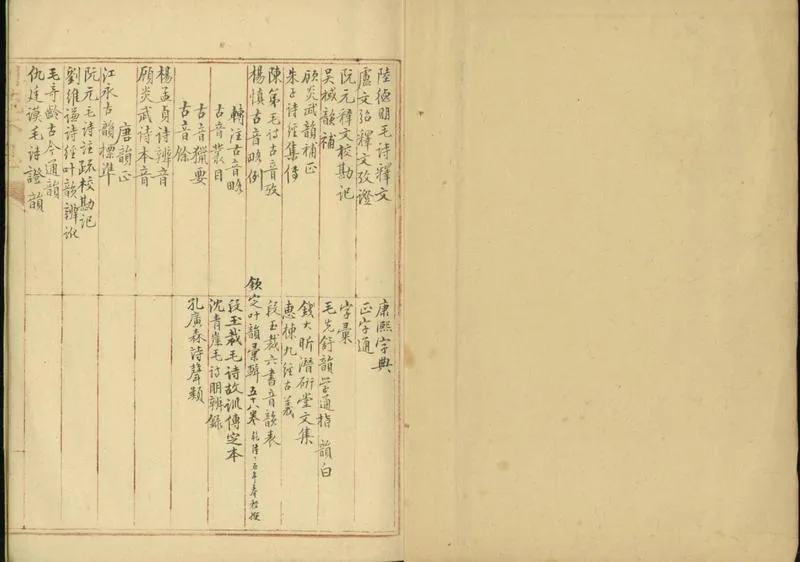 陸德明毛詩釋文
盧文弨釋文攷證
阮元釋文校勘記
吳棫韻補
顧炎武韻補正
朱子詩經集傳
陳第毛詩古音攷
楊慎古音畧例
轉注古音畧
古音叢目
古音獵要
古音餘
楊孟貞詩辨音
顧炎武詩本音
唐韻正
江永古韻標準
阮元毛詩註疏校勘記
劉維謙詩經叶韻辨訛
毛奇齡古今通韻
仇廷謨毛詩證韻
康熙字典
正字通
字彙
毛先舒韻學通指 韻白
錢大昕潛研堂文集
惠棟九經古義
段玉裁六書音韻表
欽定叶韻彙輯 五十八卷 乾隆十五年奉敕撰
段玉裁毛詩故訓傳定本
沈青崖毛詩明辨錄
孔廣森詩聲類